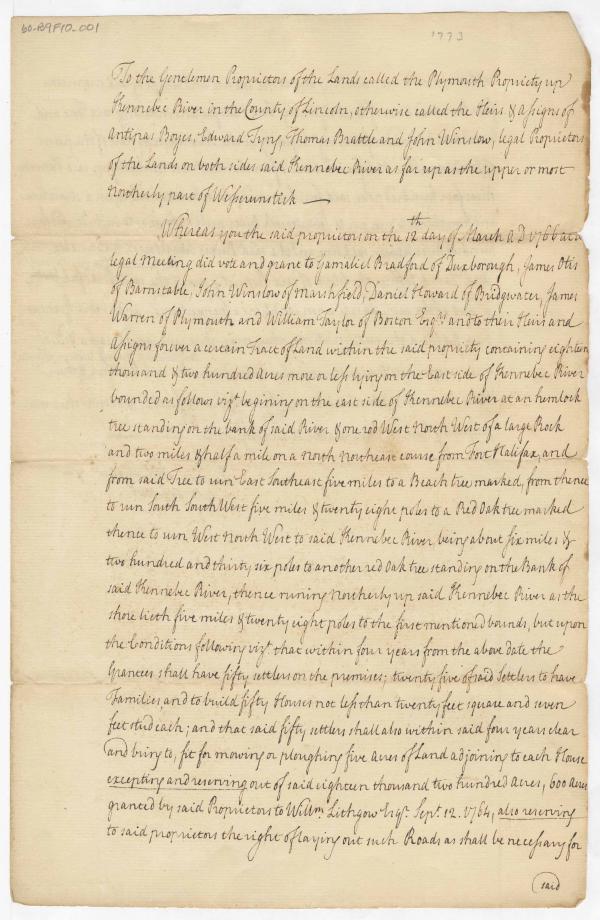 60-B9F10-001
1773
To the Gentlemen Proprietors of the Lands called the Plymouth Propriety up
Kennebec River in the County of Lincoln, otherwise called the Heirs & Assigns of
Antipas Boyes, Edward Tyng, Thomas Brattle and John Winslow, legal Proprietors
of the Lands on both sides said Kennebec River as far up as the upper or most
Northerly part of Wesserunstick —
Whereas you the said proprietors on the 12th day of March AD 1766 at a
legal meeting did vote and grant to Gamaliel Bradford of Duxborough, James Otis
of Barnstable, John Winslow of Marshfield, Daniel Howard of Bridgwater, James
Warren of Plymouth and William Taylor of Boston Esqrs and to their Heirs and
Assigns forever a certain Tract of Land within the said propriety containing eighteen
thousand & two hundred Acres more or less lying on the East side of Kennebec River
bounded as follows vizt begining on the east side of Kennebec River at an hemlock
tree standing on the bank of said River & one rod West North West of a large Rock
and two miles & half a mile on a North Northeast course from Fort Halifax, and
from said Tree to run East Southeast five miles to a Beach tree marked, from thence
to run South South West five miles & twenty eight poles to a Red Oak tree marked
thence to run West North West to said Kennebec River being about six miles &
two hundred and thirty six poles to another red Oak tree standing on the Bank of
said Kennebec River, thence runing Northerly up said Kennebec River as the
shore lieth five miles & twenty eight poles to the first mentioned bounds, but upon
the Conditions following vizt that within four years from the above date the
Grantees shall have fifty settlers on the premises; twenty five of said Settlers to have
Families, and to build fifty Houses not less than twenty feet square and seven
feet stud each; and that said fifty settlers shall also within said four years clear
and bring to, fit for mowing or ploughing five Acres of Land adjoining to each House
excepting and reserving out of said eighteen thousand two hundred Acres, 600 Acres
granted by said Proprietors to Willm Lithgow Esqr. Sept. 12. 1764, also reserving
to said proprietors the right of laying out such Roads as shall be necessary for
said